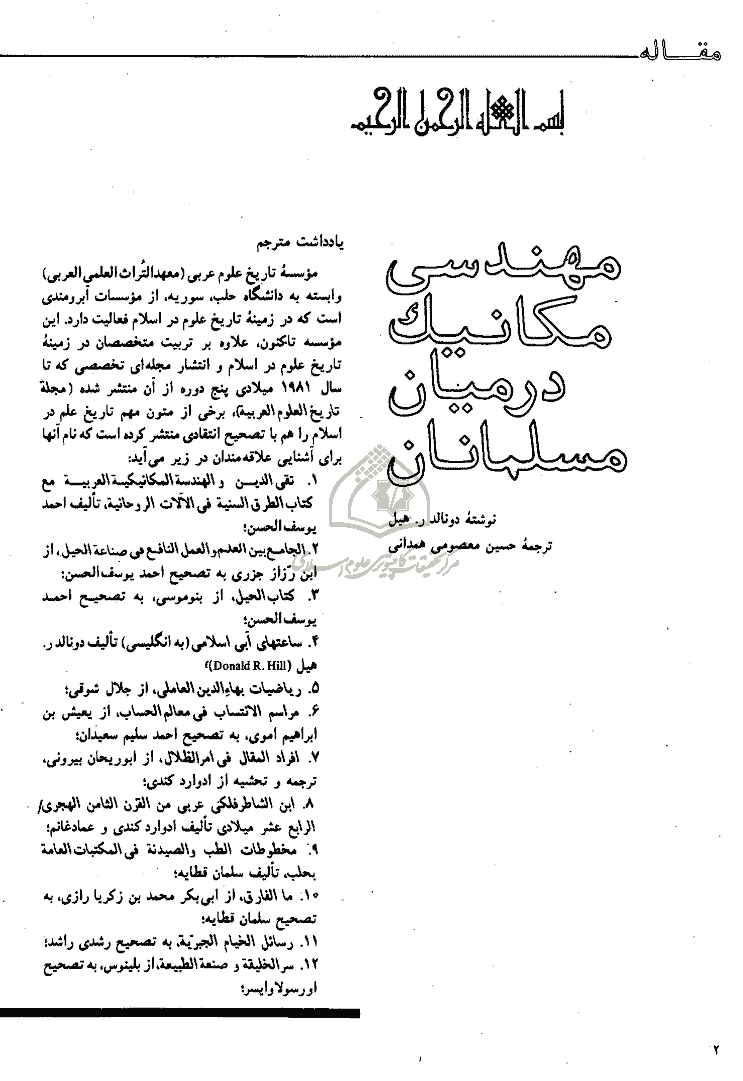 مقاله
بسم الله الرحمن الرحیم
مهندسی
مکانیك
درمیان
مسلمانان
نوشتهٔ دونالد ر. هیل
ترجمهٔ حسین معصومی همدانی
یادداشت مترجم
مؤسسهٔ تاریخ علوم عربی (معهدالتُراث العلمی العربی)
وابسته به دانشگاه حلب، سوریه، از مؤسسات آبرومندی
است که در زمینهٔ تاریخ علوم در اسلام فعالیت دارد. این
مؤسسه تاکنون، علاوه بر تربیت متخصصان در زمینهٔ
تاریخ علوم در اسلام و انتشار مجله‌ای تخصصی که تا
سال ۱۹۸۱ میلادی پنج دوره از آن منتشر شده (مجلة
تاریخ العلوم العربیة)، برخی از متون مهم تاریخ علم در
اسلام را هم با تصحیح انتقادی منتشر کرده است که نام آنها
برای آشنایی علاقه‌مندان در زیر می‌آید:
۱. تقی الدین و الهندسة المکانیکیة العربیة مع
کتاب الطرق السنیة فی الآلات الروحانیة، تألیف احمد
یوسف الحسن؛
۲. الجامع بین العلم و العمل النافع فی صناعة الحیل، از
ابن رزّاز جزری به تصحیح احمد یوسف الحسن؛
۳. کتاب الحیل، از بنوموسی، به تصحیح احمد
یوسف الحسن؛
۴. ساعتهای آبی اسلامی (به انگلیسی) تألیف دونالد ر.
هیل (Donald R. Hill)؛
۵. ریاضیات بهاءالدین العاملی، از جلال شوقی؛
۶. مراسم الانتساب فی معالم الحساب، از یعیش بن
ابراهیم اموی، به تصحیح احمد سلیم سعیدان؛
۷. افراد المقال فی امرالظلال، از ابوریحان بیرونی،
ترجمه و تحشیه از ادوارد کندی؛
۸. ابن الشاطر فلکی عربی من القرن الثامن الهجری/
الرابع عشر میلادی تألیف ادوارد کندی و عمادغانم؛
۹. مخطوطات الطب والصیدنة فی المکتبات العامة
بحلب، تألیف سلمان قطایه؛
۱۰. ما الفارق، از ابی‌بکر محمد بن زکریا رازی، به
تصحیح سلمان قطایه؛
۱۱. رسائل الخیام الجبریّة، به تصحیح رشدی راشد؛
۱۲. سرالخلیقة و صنعة الطبیعة، از بلینوس، به تصحیح
اورسولا وایسر؛
مرکز تحقیقات کامپیوتری علوم اسلامی
۲